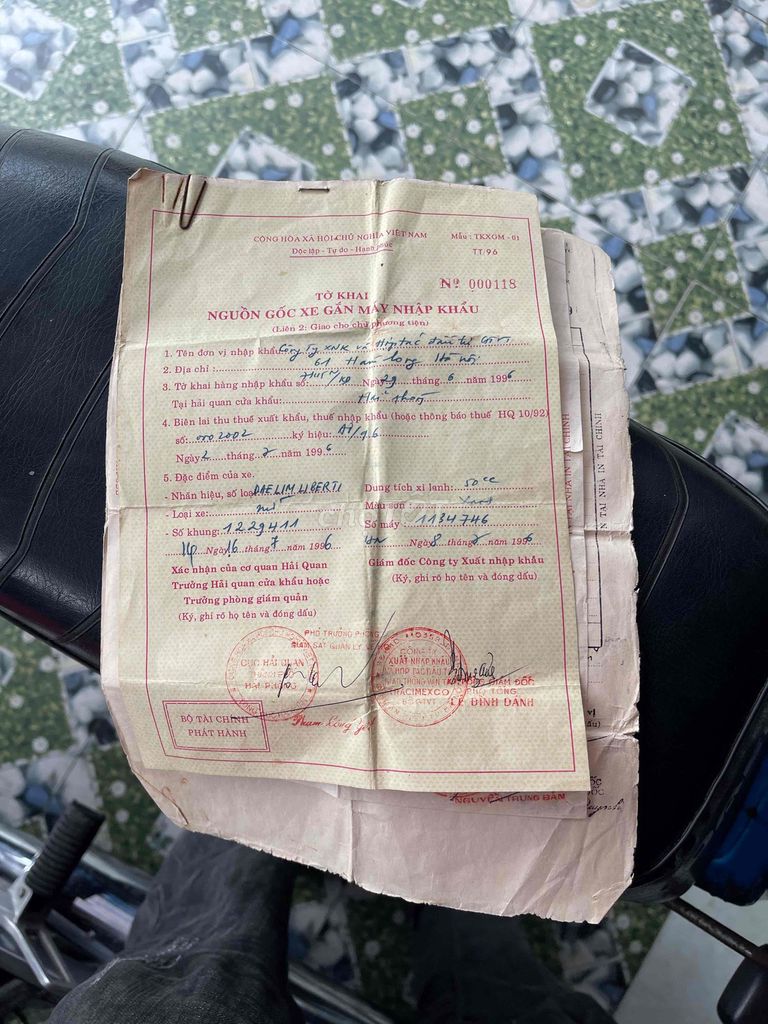 CỘNG HÒA XÃ HỘI CHỦ NGHĨA VIỆT NAM
Độc lập - Tự do - Hạnh phúc
Mẫu : TKXGM - 01
TT/96
Nº 000118
TỜ KHAI
NGUỒN GỐC XE GẮN MÁY NHẬP KHẨU
(Liên 2: Giao cho chủ phương tiện)
1. Tên đơn vị nhập khẩu Công ty XNK và Hợp tác đầu tư GTVT
2. Địa chỉ : 61 Hà Nội
3. Tờ khai hàng nhập khẩu số: Ngày 29 tháng 6 năm 1996
Tại hải quan cửa khẩu:
4. Biên lai thu thuế xuất khẩu, thuế nhập khẩu (hoặc thông báo thuế HQ 10/92)
số: 002002 ký hiệu: AĐ/96
Ngày 2 tháng 7 năm 1996
5. Đặc điểm của xe.
- Nhãn hiệu, số loại DAELIM LIBERTI Dung tích xi lanh: 50cc
- Loại xe: Màu sơn: Xanh
- Số khung: 1229411 Số máy: 1134746
HP Ngày 16 tháng 7 năm 1996 HN Ngày 8 tháng 7 năm 1996
Xác nhận của cơ quan Hải Quan
Trưởng Hải quan cửa khẩu hoặc
Trưởng phòng giám quản
(Ký, ghi rõ họ tên và đóng dấu)
Giám đốc Công ty Xuất nhập khẩu
(Ký, ghi rõ họ tên và đóng dấu)
PHÓ TRƯỞNG PHÒNG
GIÁM SÁT QUẢN LÝ
CỤC HẢI QUAN
HẢI PHÒNG
CÔNG TY
XUẤT NHẬP KHẨU
HỢP TÁC ĐẦU TƯ
GIAO THÔNG VẬN TẢI
TRACIMEXCO
BỘ GTVT
GIÁM ĐỐC
PHÓ TỔNG
LÊ ĐÌNH DANH
BỘ TÀI CHÍNH
PHÁT HÀNH
NGUYỄN TRUNG BẢN
IN TẠI NHÀ IN TÀI CHÍNH
chợ TỐT